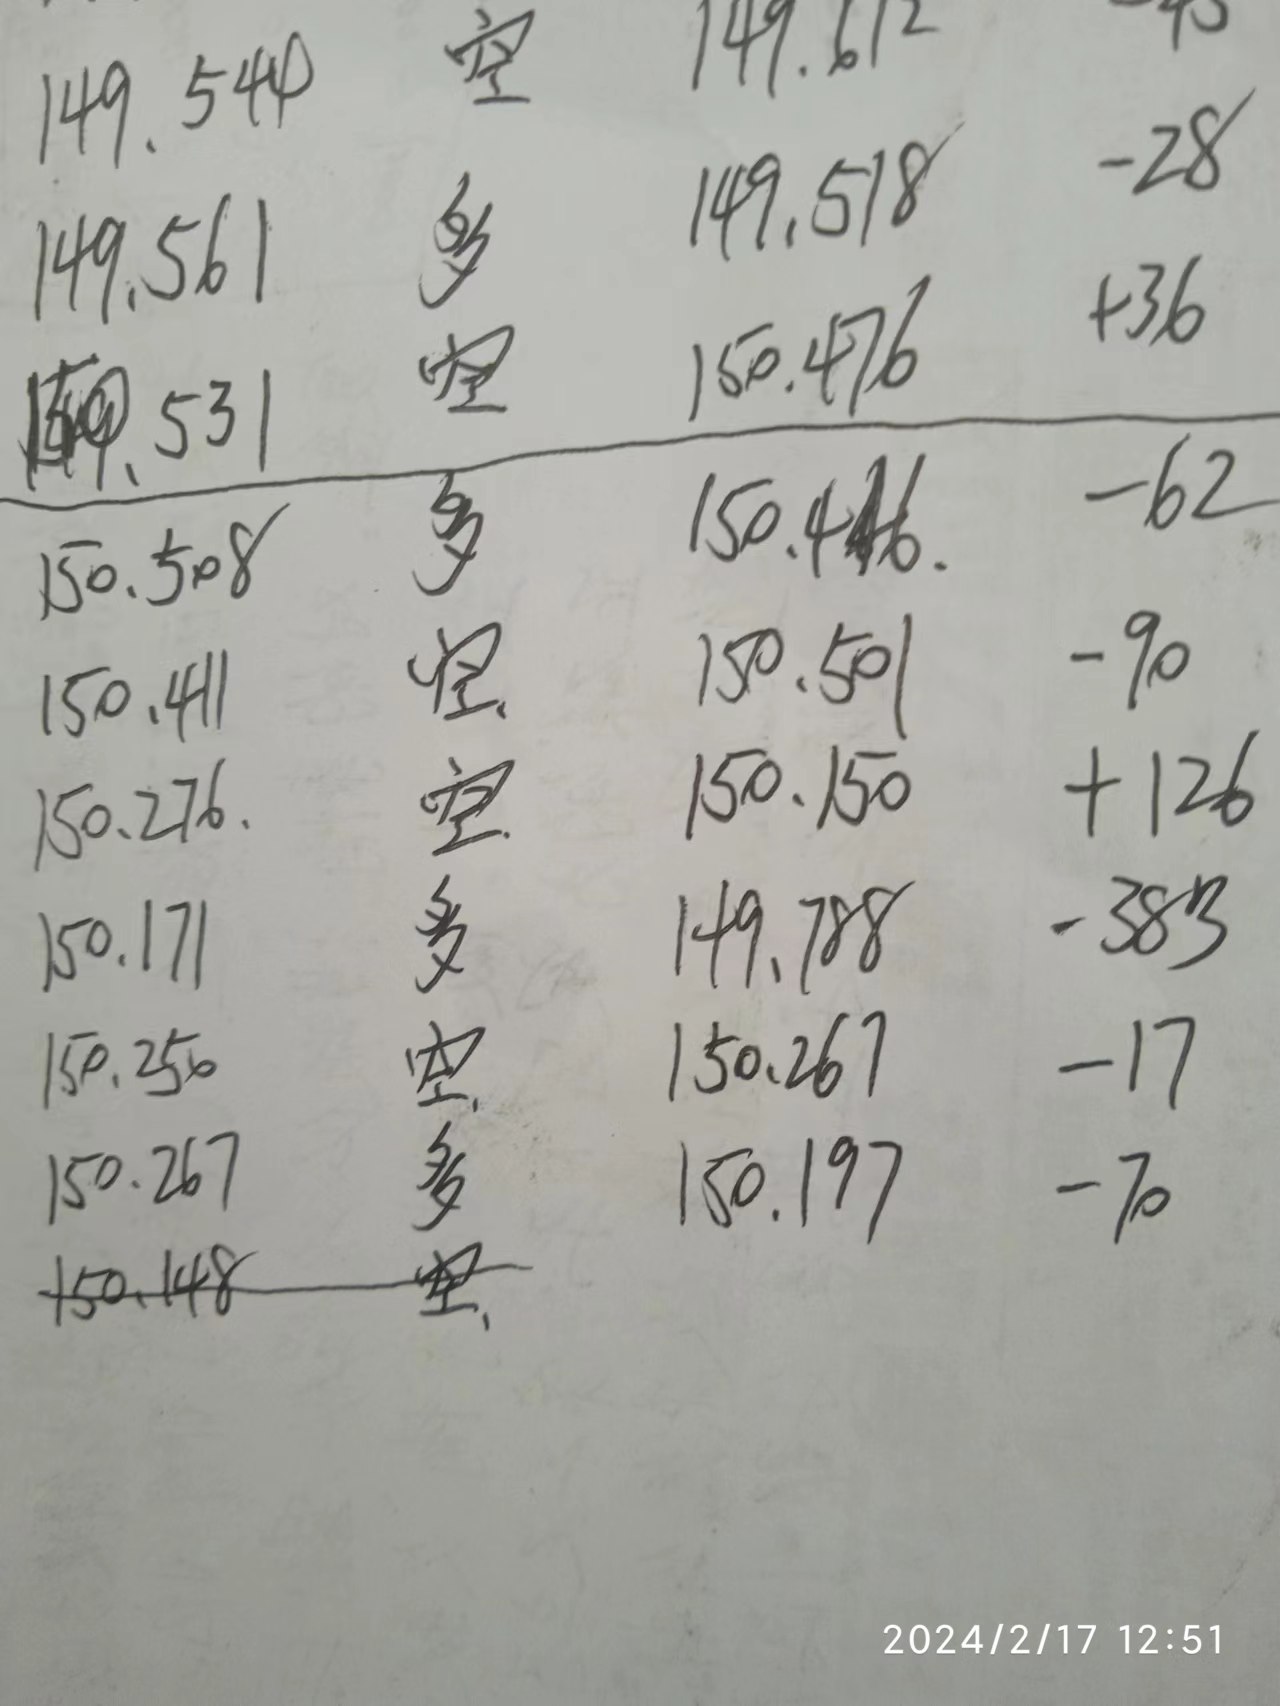 149.540 空 149.612
149.561 多 149.518 -28
.531 空 150.476 +36
150.508 多 150.446. -62
150.411 空. 150.501 -90
150.276. 空. 150.150 +126
150.171 多 149.788 -383
150.250 空. 150.267 -17
150.267 多 150.197 -70
150.148 空.
2024/2/17 12:51